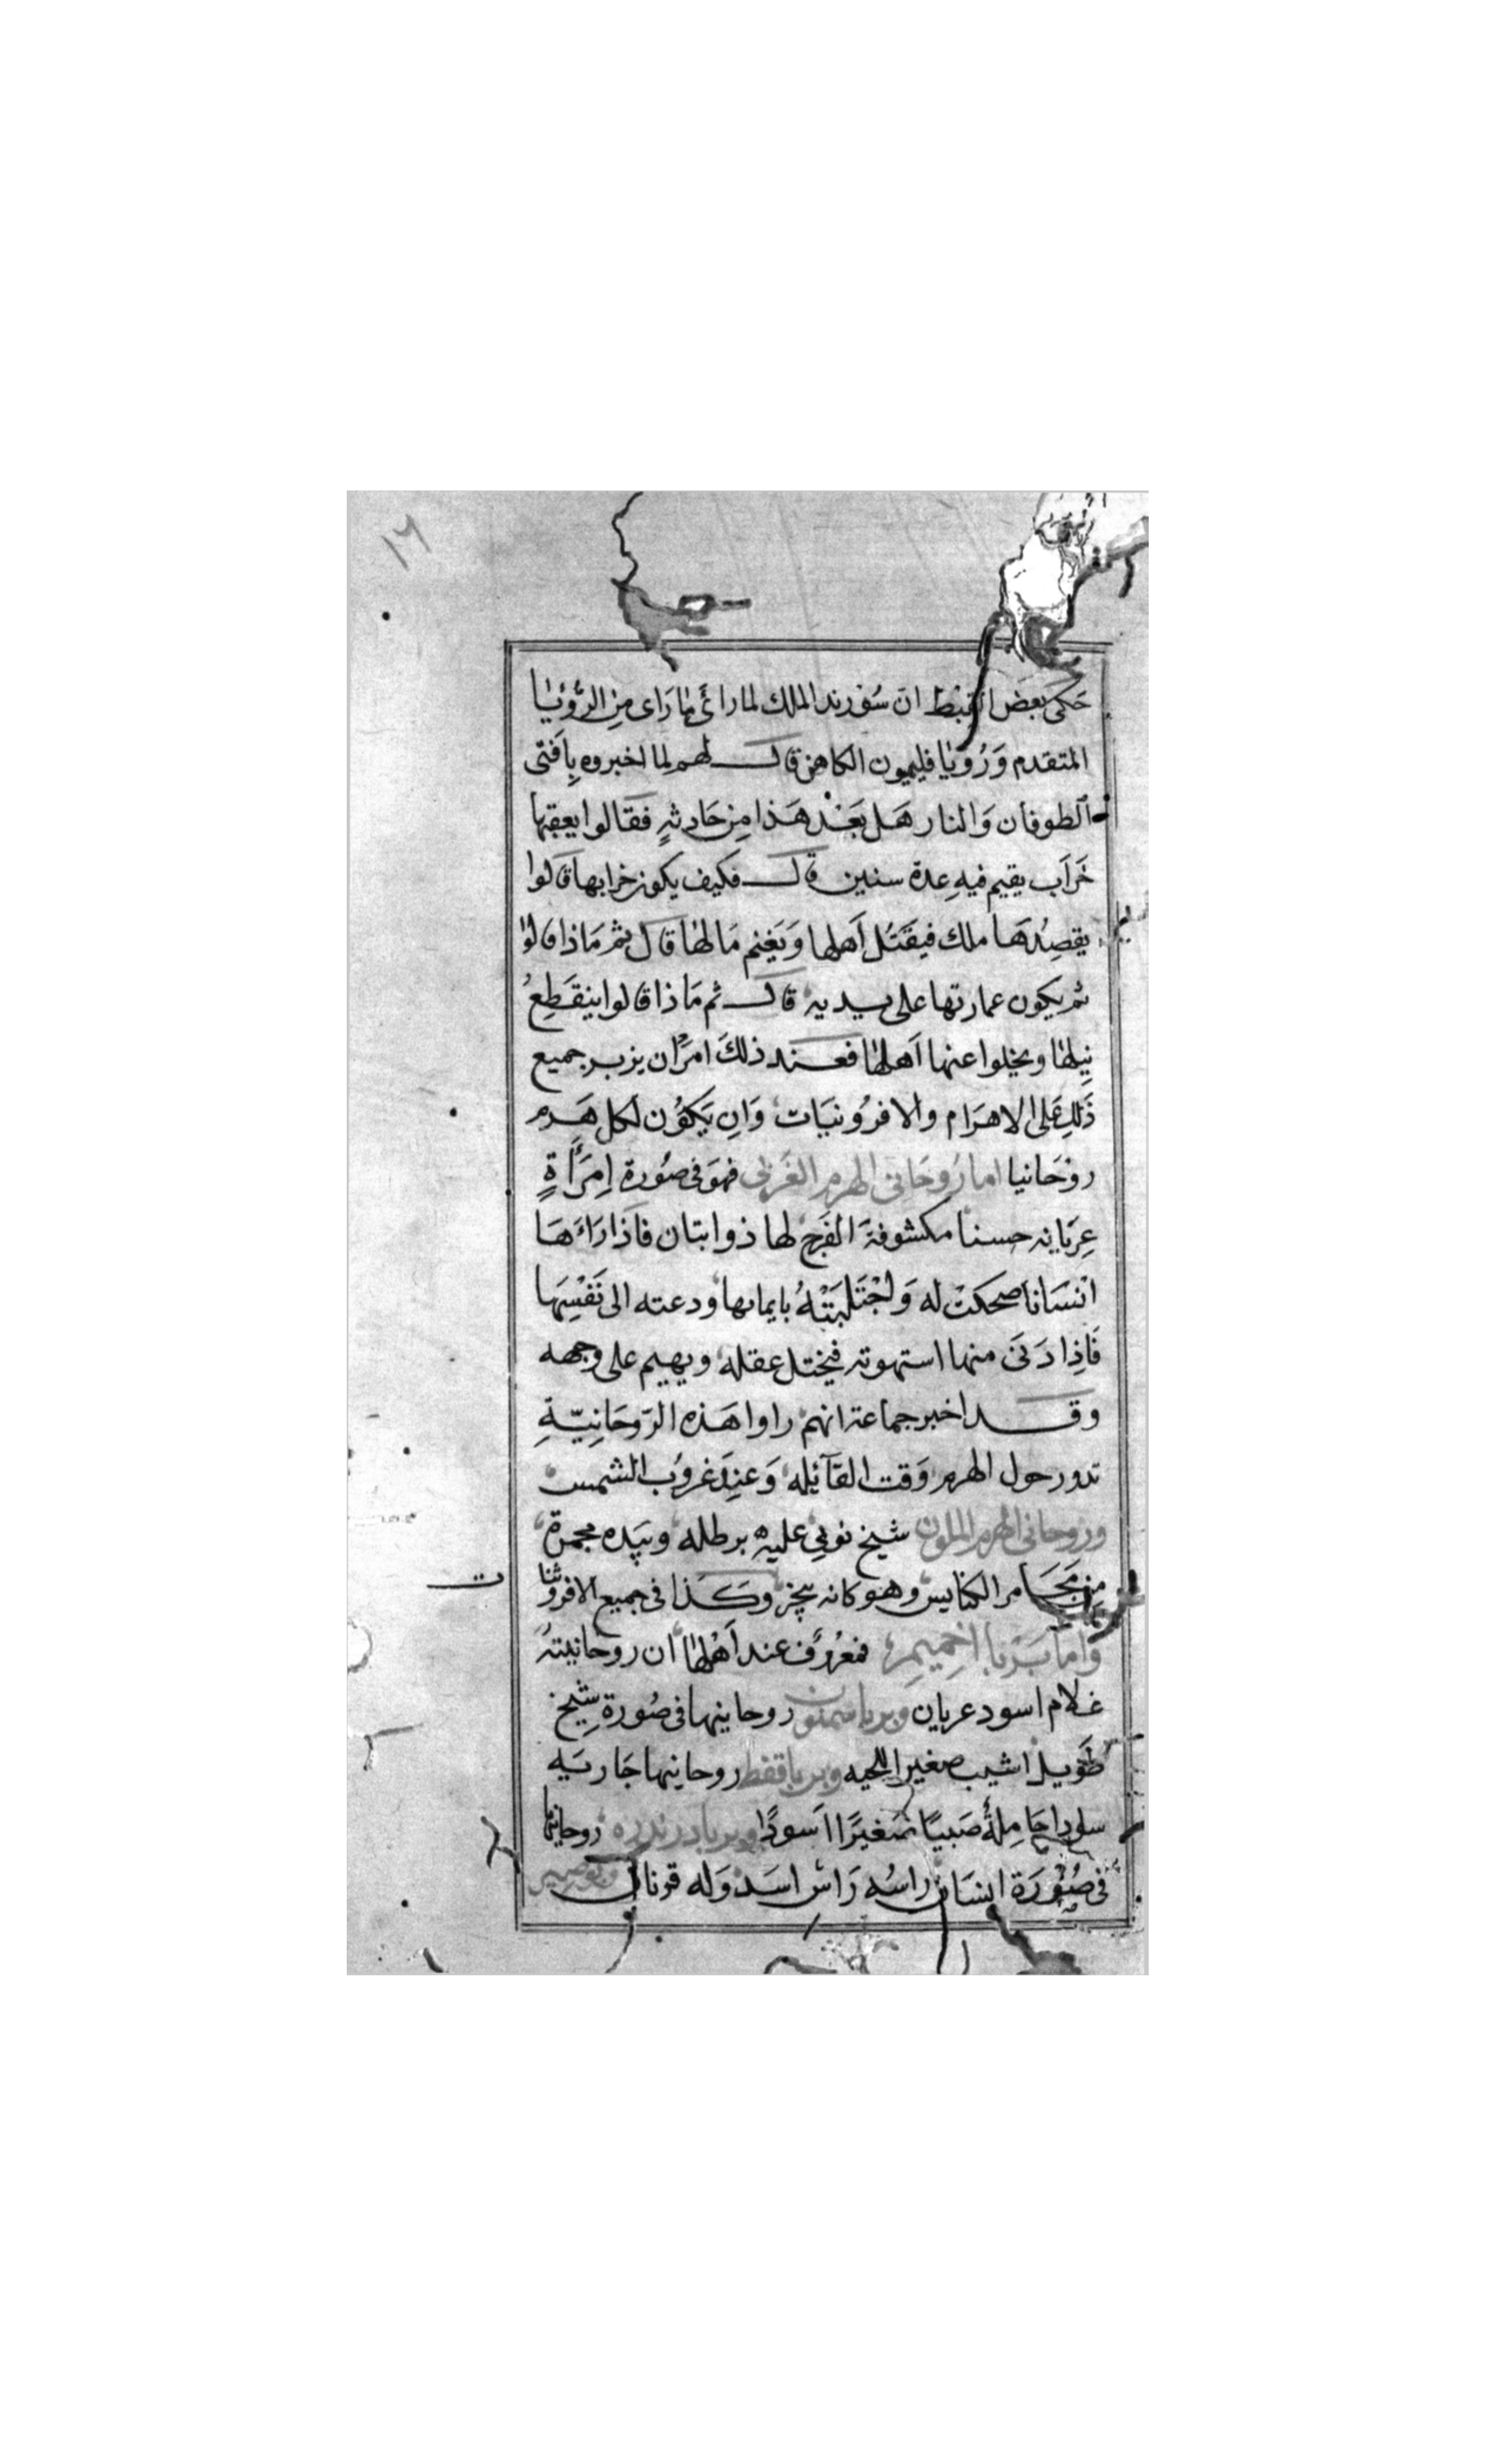 ١٦
حَكَى بعض القبط ان سُوْرند الملك لما رائ مَا رَاى مِن الرُّؤيَا
المتقدم وَرُويَا فليمون الكاهن قال لهم لما اخبروه بِافتى
الطوفان وَالنار هَل بَعْد هَذا مِن حَادثهٍ فقالوا يعقبها
خَرَاب يقيم فيهِ عدة سنين قال فكيف يكون خرابها قالوا
يقصِدهَا ملك فيقتُل اَهلها وَيَغنم مَالها قال ثم مَاذا قالوا
ثم يكون عمارتها على يديه قال ثم مَاذا قالوا ينقَطِعُ
نِيلها ويخلوا عنها اَهلها فعند ذلكَ امرَ ان يزبر جميع
ذَلِكَ على الاهرَام والافرُونيَات وَان يَكوُن لكل هَرم
روْحَانيا اما رُوحَانى الهرم الغَربى فهوَ فى صُورة اِمرَأَةٍ
عِريَانه حسنا مكشوفةَ الفرج لها ذوابتان فاذا رَاءَهَا
انسَانا ضحكتْ له وَاجْتَلَبَتْهُ بايمائها ودعته الى نَفْسِهَا
فَاِذا دَنَى منها استهوته فيختل عقله ويهيم على وجهه
وقد اخبر جماعة انهم راوا هَذه الرّوحَانِيّةِ
تدور حول الهرم وَقت القآئله وَعنِدَ غروُب الشمس
وروحانى الهرم الملون شيخ نوبى عليه برطله وبيَده مجمرة
مِن مَجَامر الكنايس وهو كانه يبخر وكَذا فى جميع الافروثنا
ت
وَاما بَربا اخِميمِ فمعرُوف عند اَهْلها ان روحَانيتهُ
غلام اسود عريان وبربا سمنون روحانيها فى صُورة شيخ
طَويل اشيب صغير اللحيه وبربا قفط روحانيها جَاريَه
سودا حَامِلةُ صَبيًا صَغيرًا اسَودًا وبربا درندره روحانيها
فى صُوْرَة انسَان راسُه رَاسْ اسَد وَله قرنان وبوصير